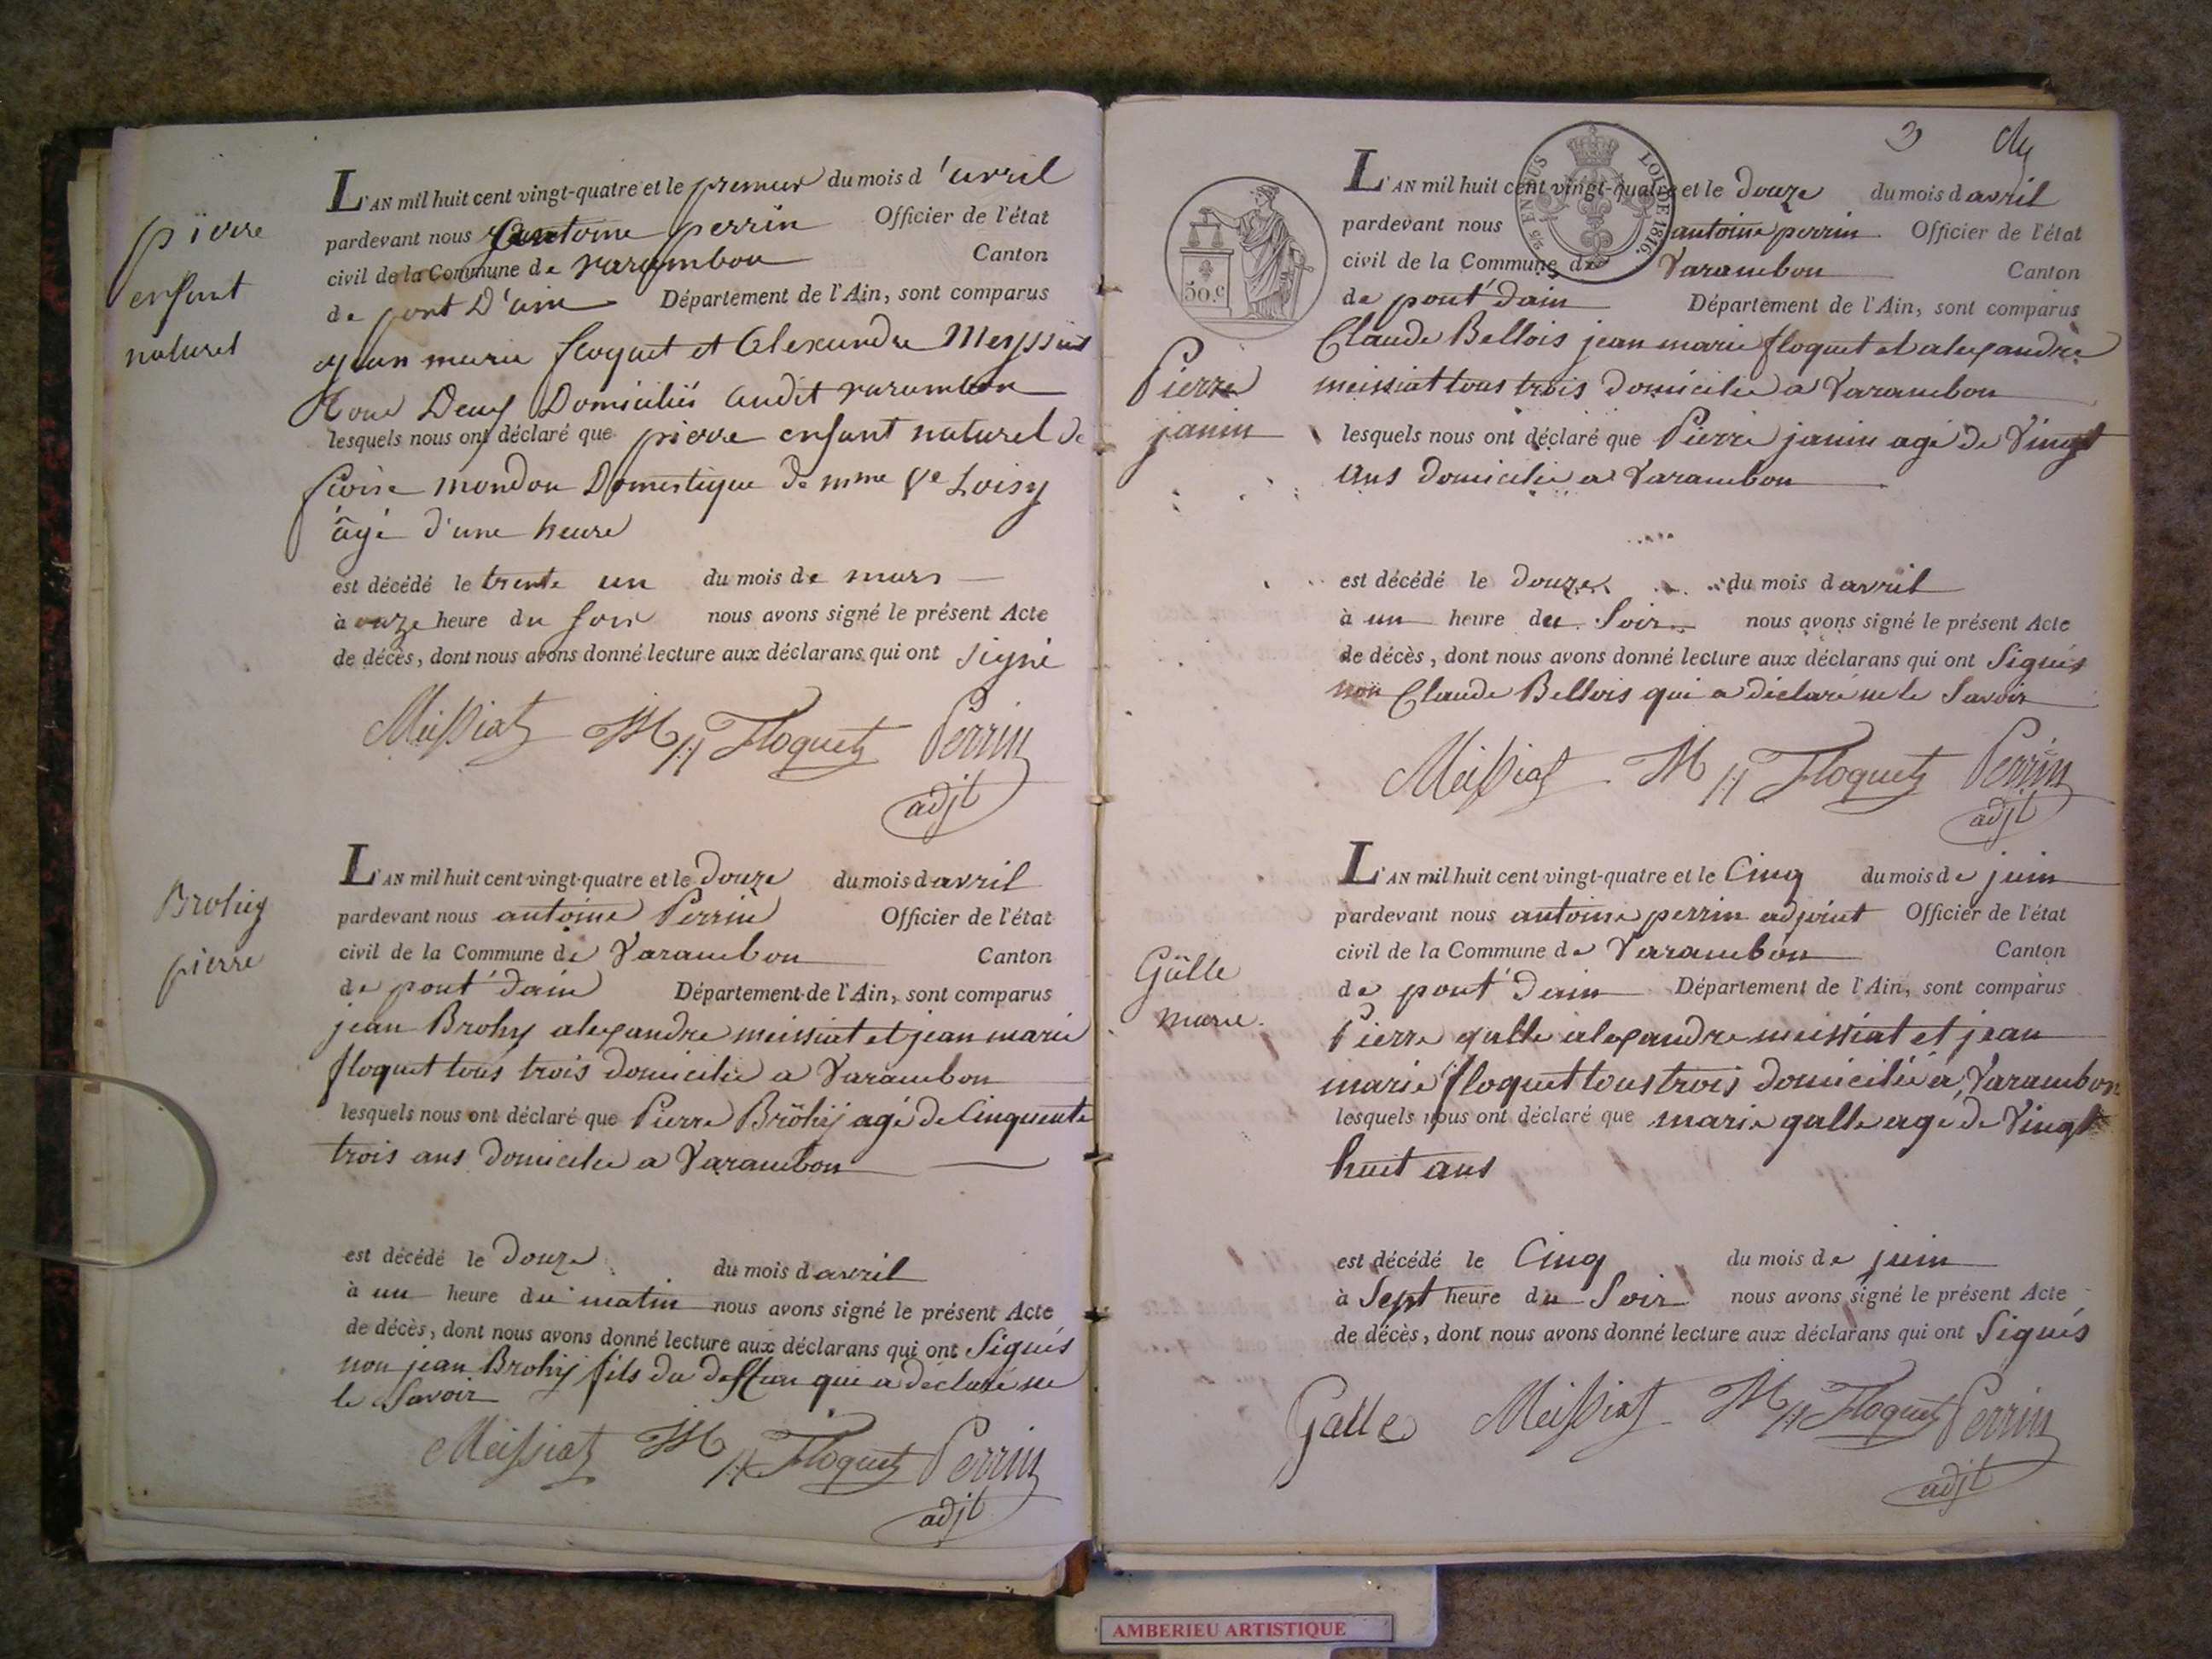 pierre
enfant
naturel
L'AN mil huit cent vingt-quatre et le premier du mois d'avril
pardevant nous antoine perrin Officier de l'état
civil de la Commune de varambon Canton
de pont D'ain Département de l'Ain, sont comparus
jean marie floquet et Alexandre Meyssiat
tous Deux Domiciliés audit varambon
lesquels nous ont déclaré que pierre enfant naturel de
fcoise mondon Domestique de mme Ve Loisy
âgé d'une heure
est décédé le trente un du mois de mars
à onze heure du soir nous avons signé le présent Acte
de décès, dont nous avons donné lecture aux déclarans qui ont signé
Meissiat M Floquet Perrin
adjt
Brohiy
pierre
L'AN mil huit cent vingt-quatre et le douze du mois d avril
pardevant nous antoine Perrin Officier de l'état
civil de la Commune de Varambon Canton
de pont d'ain Département de l'Ain, sont comparus
jean Brohy alexandre meissiat et jean marie
floquet tous trois domicilié a Varambon
lesquels nous ont déclaré que Pierre Brohij agé de Cinquente
trois ans domicilié a Varambon
est décédé le douze du mois d avril
à un heure du matin nous avons signé le présent Acte
de décès, dont nous avons donné lecture aux déclarans qui ont Signés
non jean Brohij fils du deffun qui a déclaré ne
le Savoir
Meissiat M Floquet Perrin
adjt
3
50.c
EN SUS
LOI DE 1816.
L'AN mil huit cent vingt-quatre et le douze du mois d avril
pardevant nous antoine perrin Officier de l'état
civil de la Commune de Varambon Canton
de pont d'ain Département de l'Ain, sont comparus
Claude Bellois jean marie floquet et alexandre
meissiat tous trois domicilié a Varambon
Pierre
janin
lesquels nous ont déclaré que Pierre janin agé de Vingt
ans domicilié a Varambon
est décédé le douze du mois d avril
à un heure du Soir nous avons signé le présent Acte
de décès, dont nous avons donné lecture aux déclarans qui ont Signés
non Claude Bellois qui a déclaré ne le Savoir
Meissiat M Floquet Perrin
adjt
Gâlle
marie
L'AN mil huit cent vingt-quatre et le Cinq du mois de juin
pardevant nous antoine perrin adjoint Officier de l'état
civil de la Commune de Varambon Canton
de pont d'ain Département de l'Ain, sont comparus
Pierre galle alexandre meissiat et jean
marie floquet tous trois domicilié a Varambon
lesquels nous ont déclaré que marie galle agé de Vingt
huit ans
est décédé le Cinq du mois de juin
à Sept heure du Soir nous avons signé le présent Acte
de décès, dont nous avons donné lecture aux déclarans qui ont Signés
Galle Meissiat M Floquet Perrin
adjt
AMBERIEU ARTISTIQUE